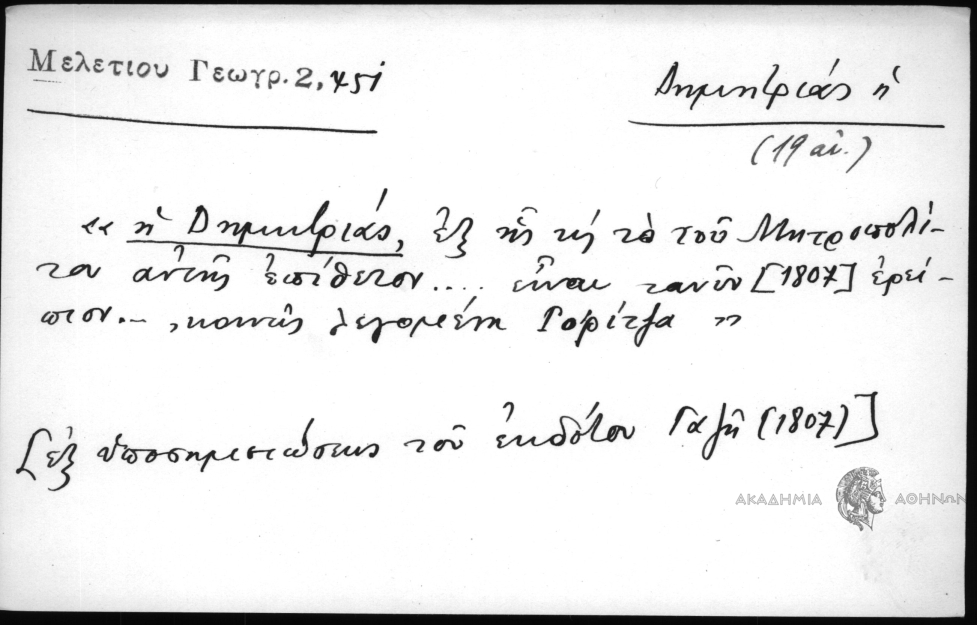 Μελετιου Γεωγρ. 2, 451
Δημητριάς ἡ
(19 αἰ.)
« ἡ Δημητριάς, ἐξ ἧς τὸ τοῦ Μητροπολί-
του αὐτῆς ἐπίθετον.... εἶναι τανῦν [1807] ἐρεί-
πιον... , κοινῶς λεγομένη Γορίτζα »
[ἐξ ὑποσημειώσεως τοῦ ἐκδότου Γαζῆ (1807)]
ΑΚΑΔΗΜΙΑ ΑΘΗΝΩΝ